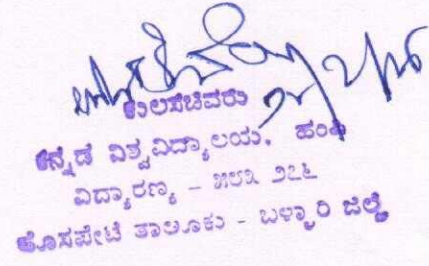 ಕುಲಸಚಿವರು
ಕನ್ನಡ ವಿಶ್ವವಿದ್ಯಾಲಯ. ಹಂಪಿ
ವಿದ್ಯಾರಣ್ಯ - ೫೮೩ ೨೭೬
ಹೊಸಪೇಟೆ ತಾಲೂಕು - ಬಳ್ಳಾರಿ ಜಿಲ್ಲೆ